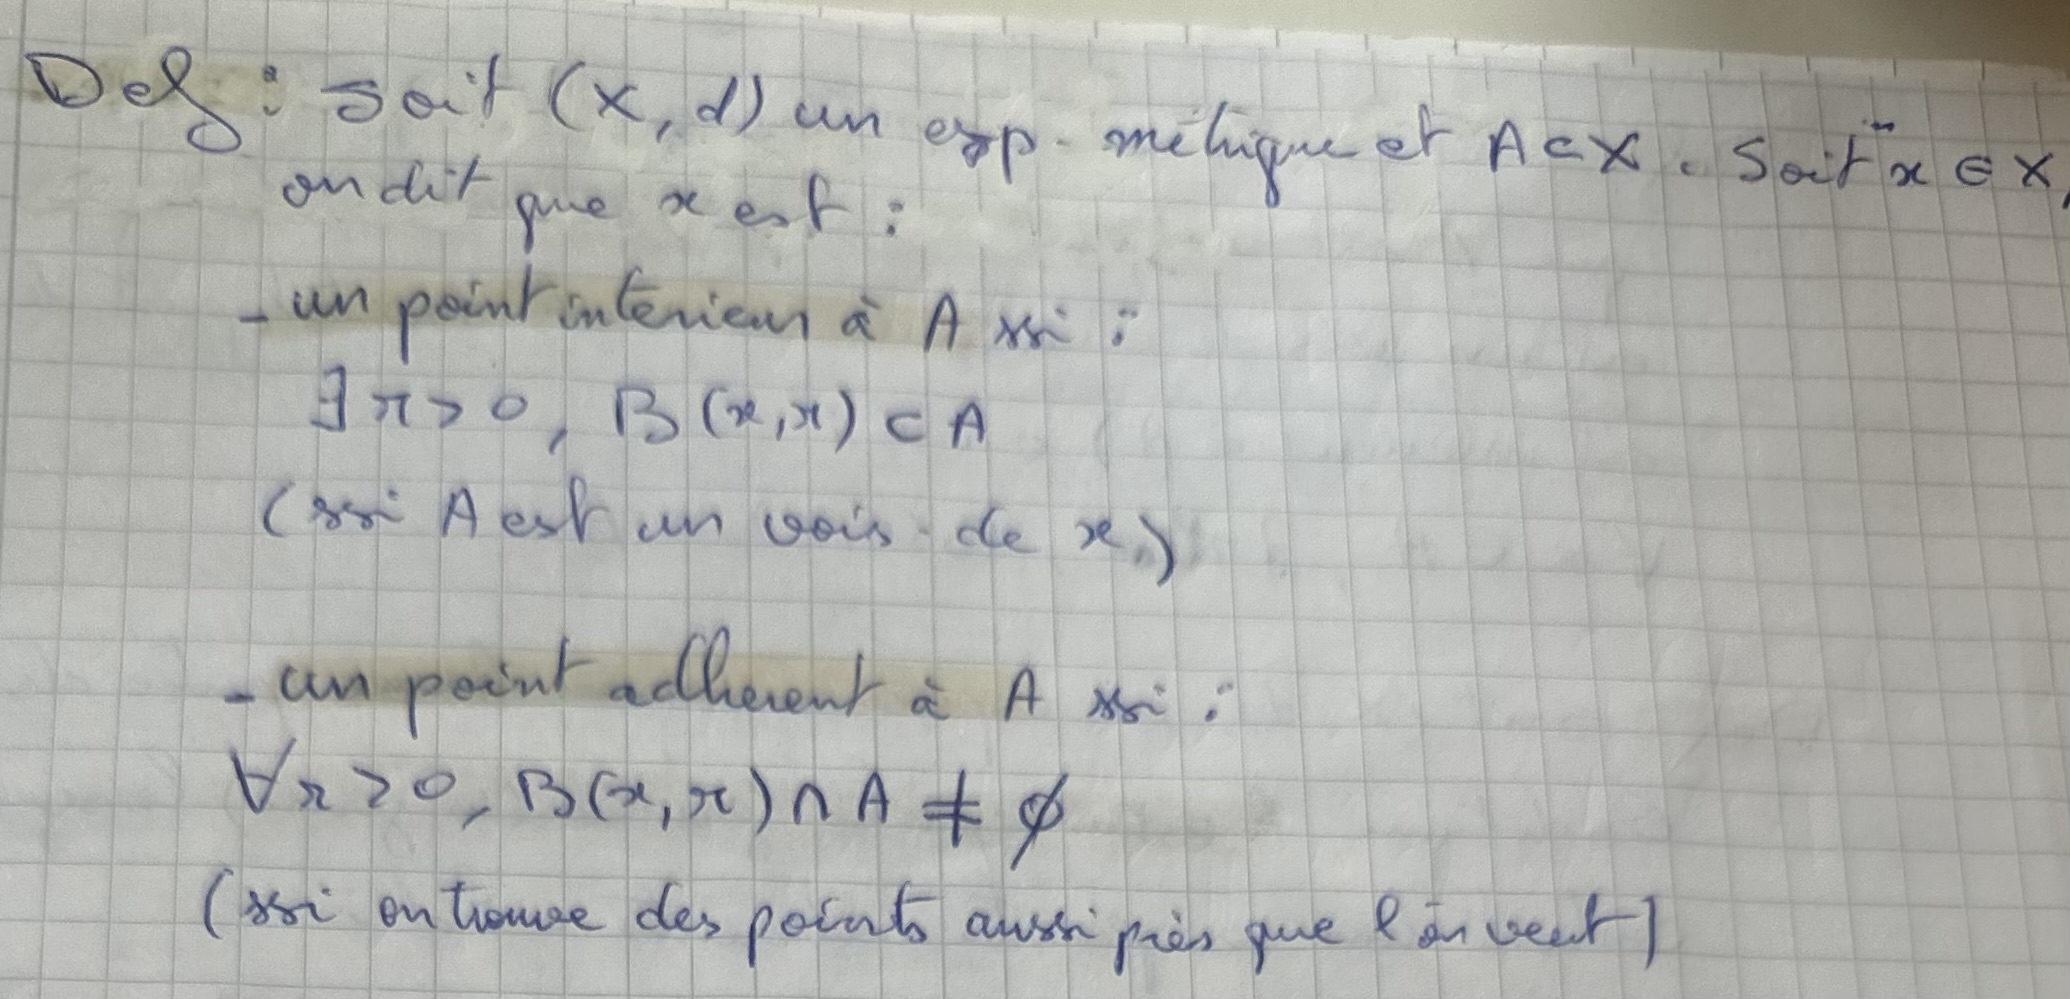 Def : Soit (X, d) un esp. métrique et A ⊂ X. Soit x ∈ X,
on dit que x est :
- un point intérieur à A ssi :
∃ r > 0, B(x, r) ⊂ A
(ssi A est un vois. de x)
- un point adherent à A ssi :
∀ r > 0, B(x, r) ∩ A ≠ ∅
(ssi on trouve des points aussi près que l'on veut)